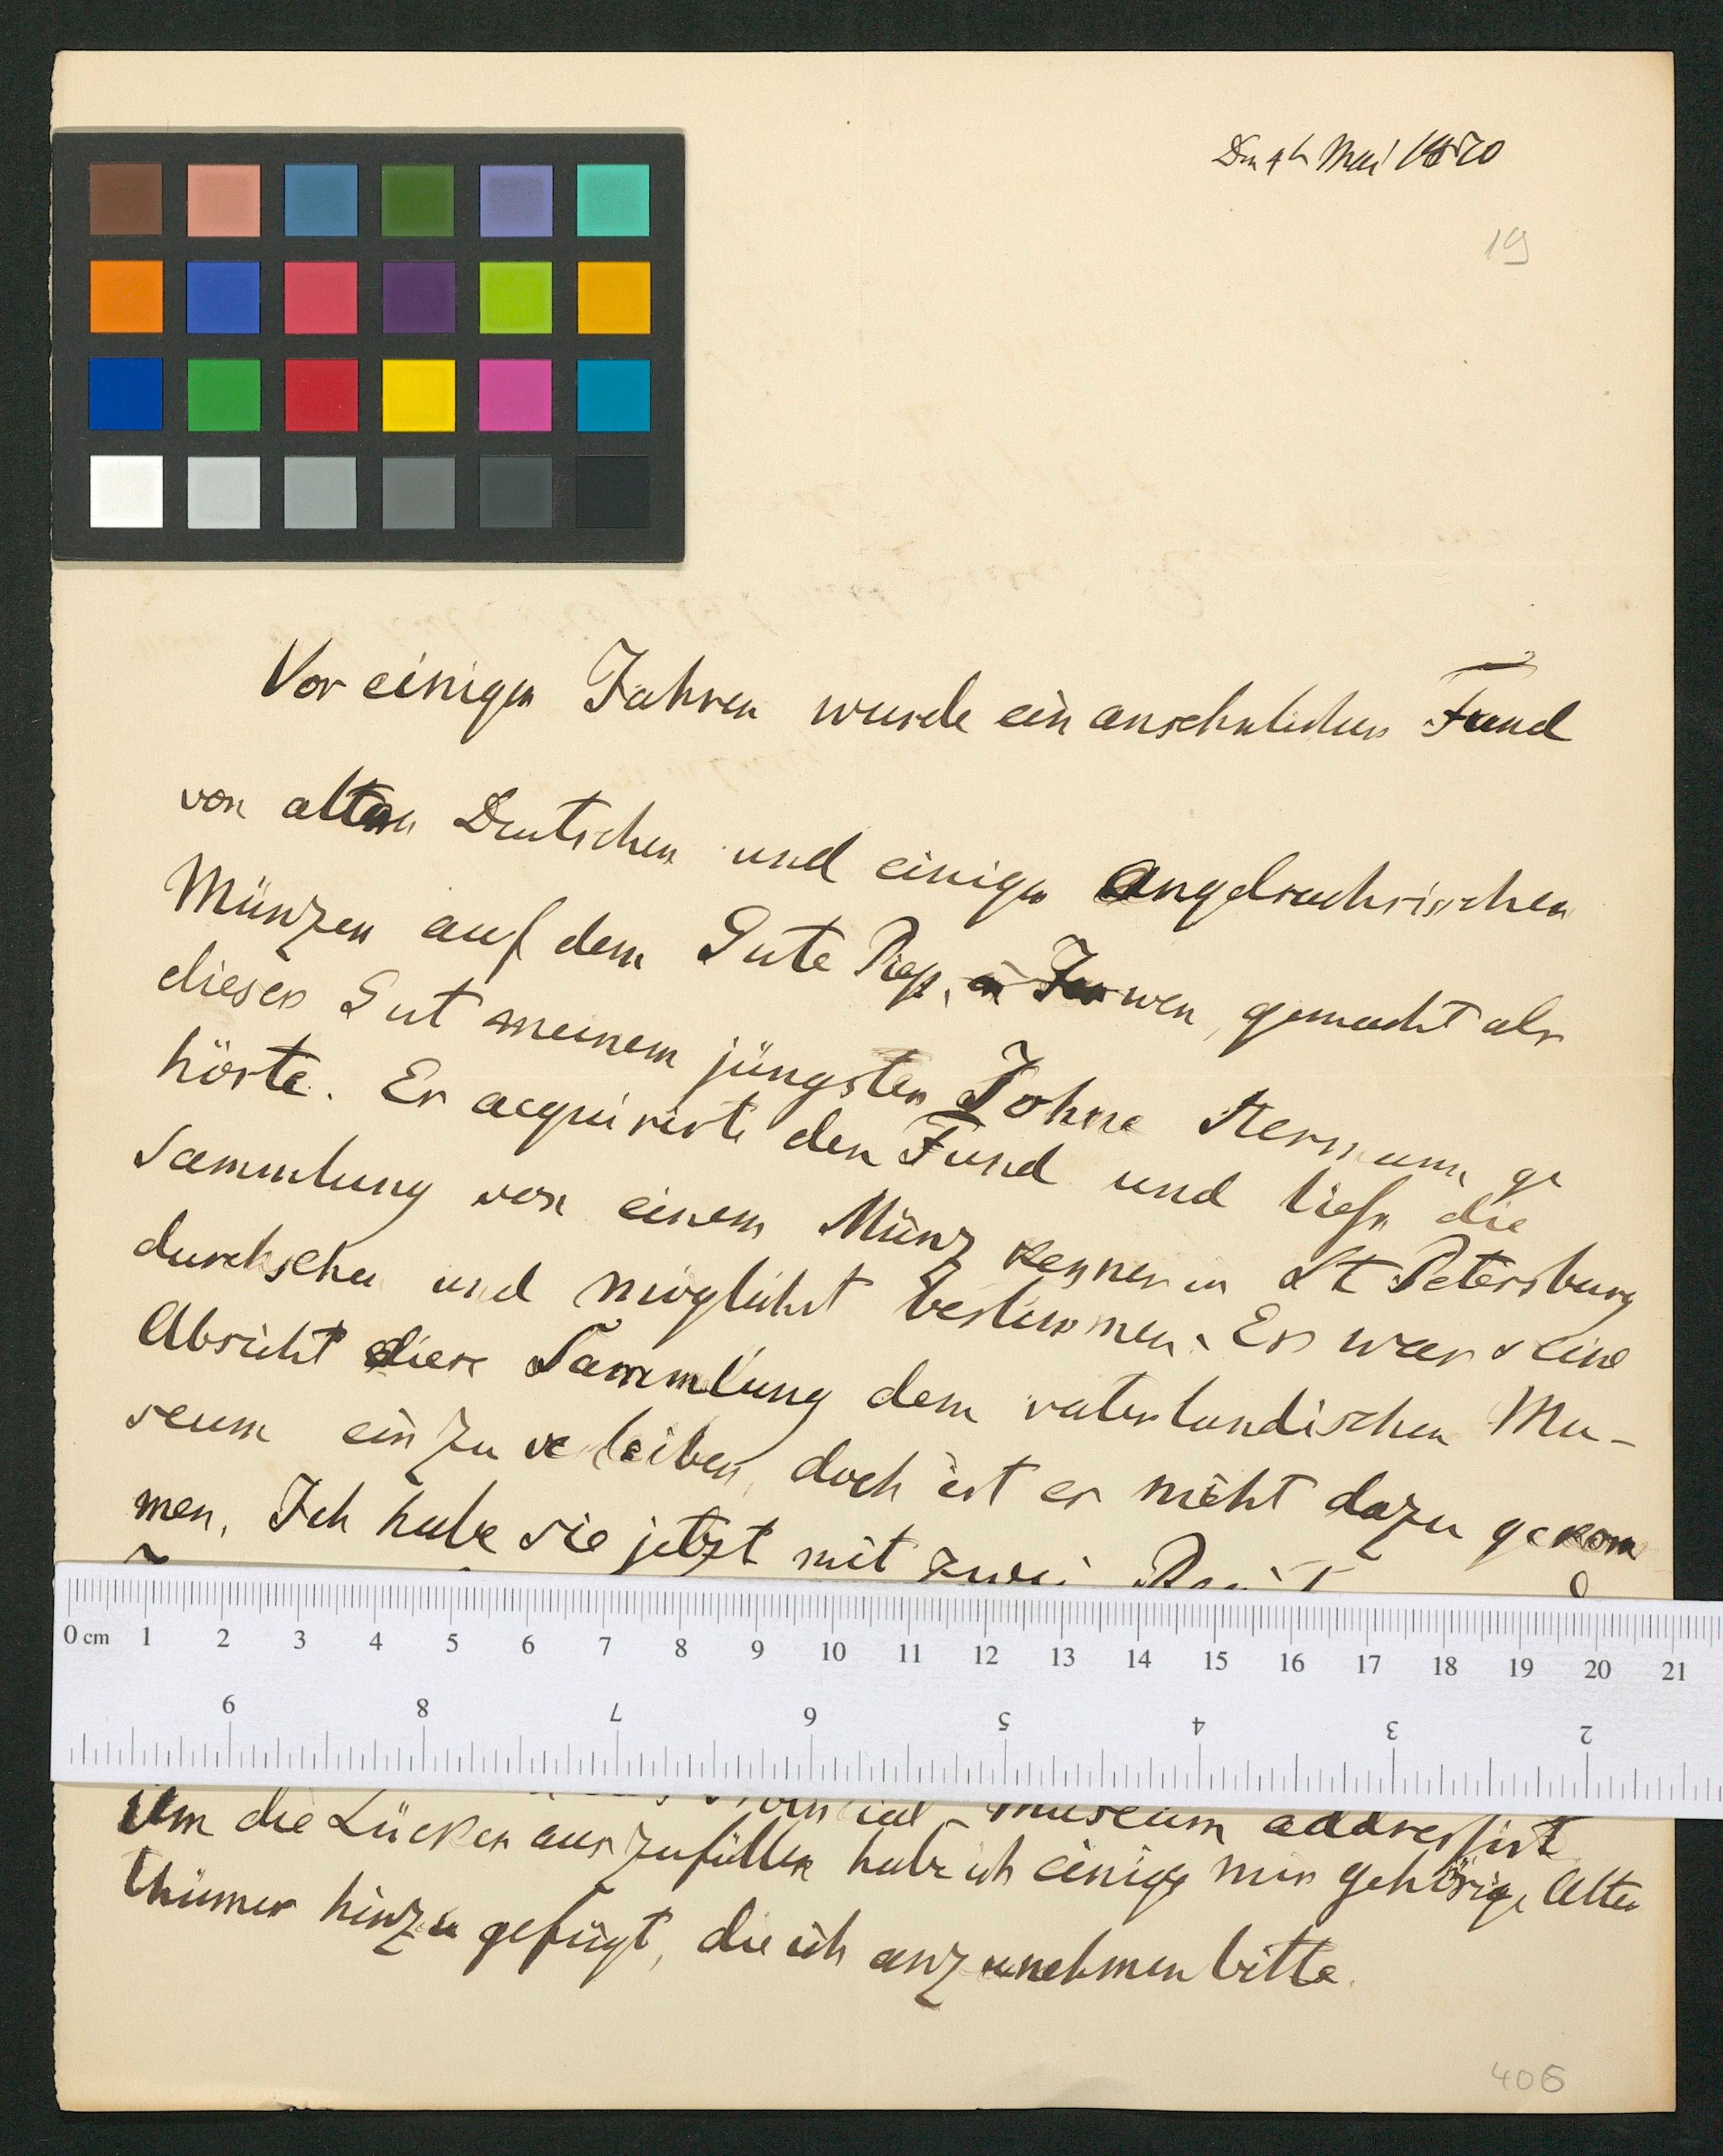 Den 4t Mai 1870
19
Vor einigen Jahren wurde ein ansehnlicher Fund
von alten Deutschen und einigen Angelsachsischen
Münzen auf dem Gute Piep, in Jerwen, gemacht als
dieses Gut meinem jüngsten Sohne Hermann ge
hörte. Er acquirirte den Fund und liess die
Sammlung von einem Münz kenner in St Petersburg
durchsehen und möglichst bestimmen. Es war seine
Absicht diese Sammlung dem vaterlandischen Mu-
seum einzuverleiben, doch ist er nicht dazu gekom
men. Ich habe sie jetzt mit zwei
0 cm 1 2 3 4 5 6 7 8 9 10 11 12 13 14 15 16 17 18 19 20 21
9 8 7 6 5 4 3 2
Provincial-Museum addressirt
Um die Lücken auszufüllen habe ich einige mir gehörige Alter
thümer hinzu gefügt, die ich anzunehmen bitte.
406